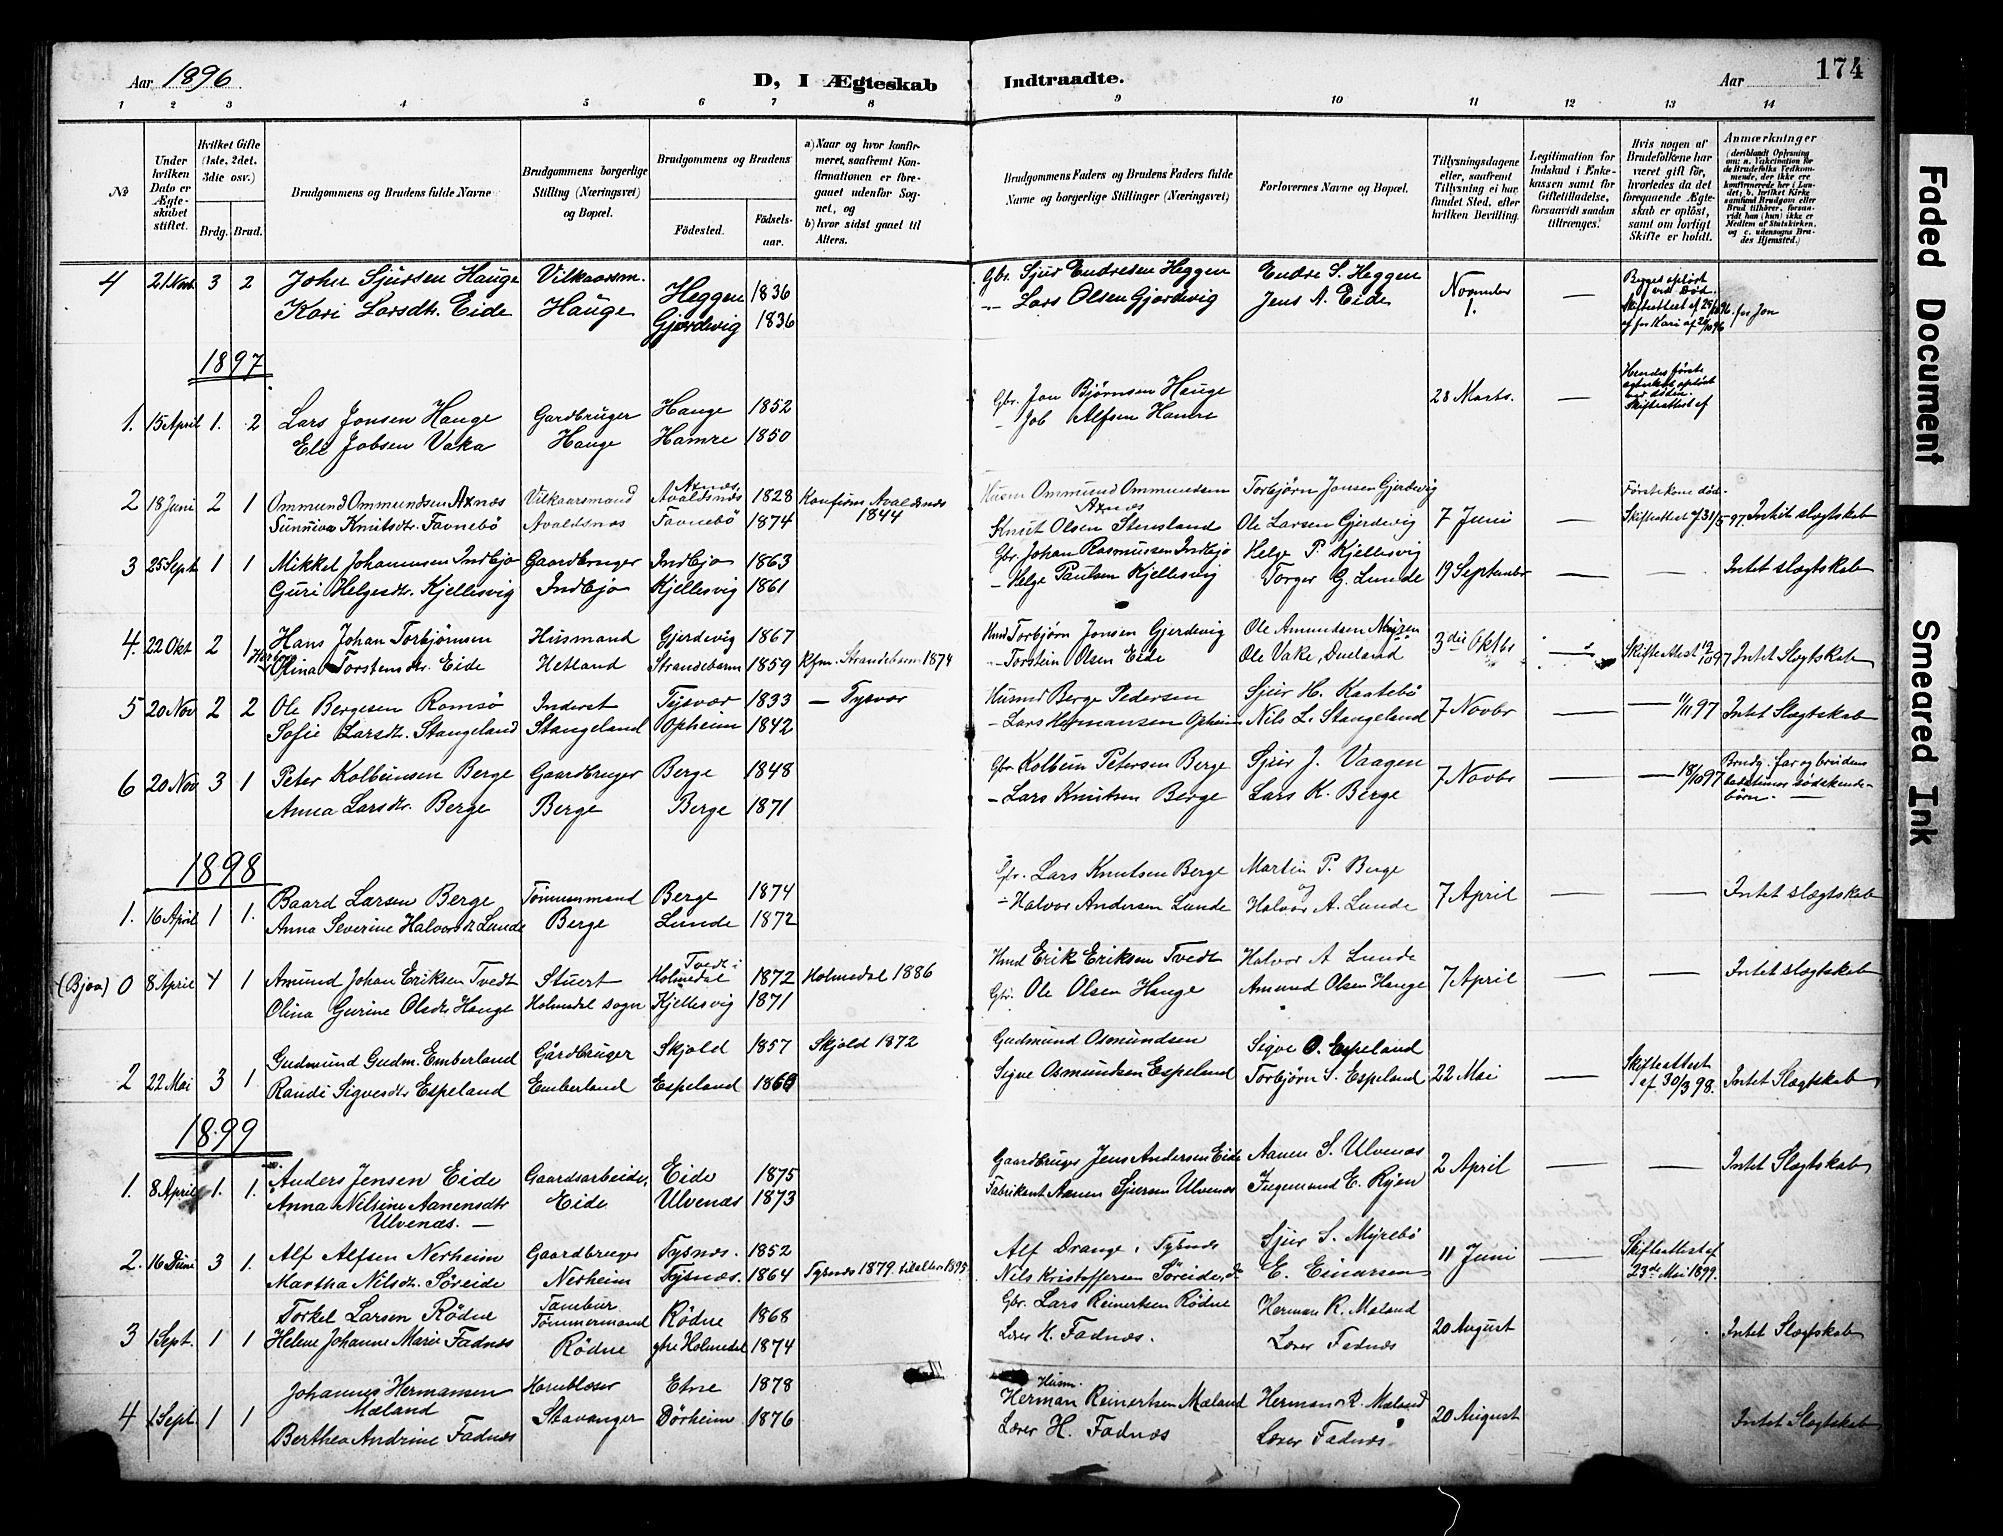 Aar 1896
D, I Ægteskab
Indtraadte.
Aar
174
1 2 3 4 5 6 7 8 9 10 11 12 13 14
No
Under hvilken Dato er Ægteskabet stiftet.
Hvilket Gifte (1ste, 2det, 3die osv.)
Brdg. Brud.
Brudgommens og Brudens fulde Navne
Brudgommens borgerlige Stilling (Næringsvei) og Bopæl.
Brudgommens og Brudens
Fødested.
Fødsels-aar.
a) Naar og hvor konfirmeret, saafremt Konfirmationen er foregaaet udenfor Sognet, og
b) hvor sidst gaaet til Alters.
Brudgommens Faders og Brudens Faders fulde Navne og borgerlige Stillinger (Næringsvei)
Forlovernes Navne og Bopæl.
Tillysningsdagene eller, saafremt Tillysning ei har fundet Sted, efter hvilken Bevilling.
Legitimation for Indskud i Enkekassen samt for Giftetilladelse, forsaavidt saadan tiltrænges.
Hvis nogen af Brudefolkene har været gift før, hvorledes da det foregaaende Ægteskab er opløst, samt om lovligt Skifte er holdt.
Anmærkninger
4 21 Novb. 3 2 John Sjursen Hauge Vilkaarsm. Heggen 1836 Gbr. Sjur Endresen Heggen Endre S. Heggen November 1. — Begges opløst ved Død.
Kari Larsdtr. Eide Hauge Gjerdevig 1836 — Lars Olsen Gjerdevig Jens A. Eide
1897
1. 15 April 1. 2 Lars Jonsen Hauge Gardbruger Hauge 1852 Gbr. Jon Bjørnsen Hauge 28 Marts. — Hendes første ægteskab opløst ved døden. Skifteattest af
Eli Jobsen Vaka Hauge Hamre 1850 - Job Alfsen Hamre
2 18 Juni 2 1 Ommund Ommundsen Axnæs Vilkaarsmand Axnæs, Avaldsnæs 1828 Konfirm. Avaldsnæs 1844 Husm Ommund Ommundsen Axnæs Torbjørn Jonsen Gjerdevig 7 Juni — Første kone død. Intet slægtskab
Sunniva Knutsdtr. Favnebö Avaldsnæs Favnebö 1874 Knut Olsen Stensland Ole Larsen Gjerdevig Skifteattest 31/5 97.
3 25 Sept. 1 1 Mikkel Johannesen Indbjo Gaardbruger Indbjo 1863 Gbr. Johan Rasmussen Indbjo Helge P. Kjellesvig 19 September — — Intet slægtskab
Guri Helgesdtr. Kjellesvig Indbjo Kjellesvig 1861 - Helge Paulsen Kjellesvig Torger G. Lunde
4. 22 Okt 2 1 Hans Johan Torbjørnsen Husmand Gjerdevig 1867 Husmd Torbjørn Jonsen Gjerdevig Ole Amundsen Myren 3die Oktbr — Skifte Attest 12/10 97 Intet Slægtskab
Olina Torstensdtr. Eide Hetland Strandebarm 1859 Kfm. Strandebarm 1874 - Torstein Olsen Eide Ole Vake, Dueland
5 20 Nov 2 2 Ole Bergesen Romsö Inderst Tysvær 1833 — Tysvær Husmd Berge Pedersen Sjur H. Kaatebö 7 Novbr — — 1/11 97 Intet Slægtskab
Sofie Larsdtr. Stangeland Stangeland Opheim 1842 - Lars Hermansen Opheim Nils L. Stangeland
6 20 Nov 3 1 Peter Kolbeinsen Berge Gaardbruger Berge 1848 Gbr Kolbein Petersen Berge Sjur J. Vaagen 7 Novbr — — 18/10 97 Brudg. far og brudens
Anna Larsdtr. Berge Berge Berge 1871 - Lars Knutsen Berge Lars K. Berge sødskendebörn. —
1898
1. 16 April 1 1. Baard Larsen Berge Tömmermand Berge 1874 Gbr. Lars Knutsen Berge Martin P. Berge 7 April — — Intet slægtskab
Anna Severine Halvorsdtr Lunde Berge Lunde 1872 - Halvor Andersen Lunde og Halvor A. Lunde
(Bjoa) 0 8 April 4 1 Amund Johan Eriksen Tvedt Stuert Tvedt i Holmedal 1872 Holmedal 1886 Husmd Erik Eriksen Tvedt Halvor A Lunde 7 April — — Intet slægtskab
Olina Gurine Olsdtr Hauge Holmedal sogn Kjellesvig 1871 Gbr. Ole Olsen Hauge Amund Olsen Hauge
2 22 Mai 3 1 Gudmund Gudm. Emberland Gårdbruger Skjold 1857 Skjold 1872 Gudmund Osmundsen Sigve O. Espeland 22 Mai — Skifteattest af 30/3 98. Intet Slægtskab
Randi Sigvesdtr Espeland Emberland Espeland 1860 Sigve Osmundsen Espeland Torbjørn S. Espeland
1899
1. 8 April 1. 1. Anders Jensen Eide Gaardsarbeider, Eide 1875 Gaardbruger Jens Andersen Eide Aanen S. Ulvenæs 2 April — — Intet Slægtskab
Anna Nelsine Aanensdtr Ulvenæs. — Eide Ulvenæs 1873 Fabrikant Aanen Sjursen Ulvenæs Ingemund E. Ryen
2. 16 Juni 3 1. Alf Alfsen Nerheim Gaardbruger Tysnæs. 1852 Alf Drange, Tysnæs Sjur S. Myrebö 11 Juni — Skifte Attest af 23de Mai 1899.
Martha Nilsdtr. Söreide Nerheim Tysnæs. 1864 Tysnæs 1879. til alters 1895 Nils Kristoffersen Söreide, do E. Einarsen
3 1 Sept. 1 1 Torkel Larsen Rödne Tambur Tömmermand Rödne 1868 Gbr. Lars Reinertsen Rödne Herman R. Mæland 20 August Intet Slægtskab
Helene Johanne Marie Fadnæs Rödne ytre Holmedal 1874 Lærer H. Fadnæs. Lærer Fadnæs
4 1 Sept. 1 1 Johannes Hermansen Mæland Hornblæser Etne 1878 Husm. Herman Reinertsen Mæland Herman R. Mæland 20 August Intet Slægtskab
Berthea Andrine Fadnæs Stavanger Dörheim 1876 Lærer H. Fadnæs Lærer Fadnæs
Faded Document
Smeared Ink